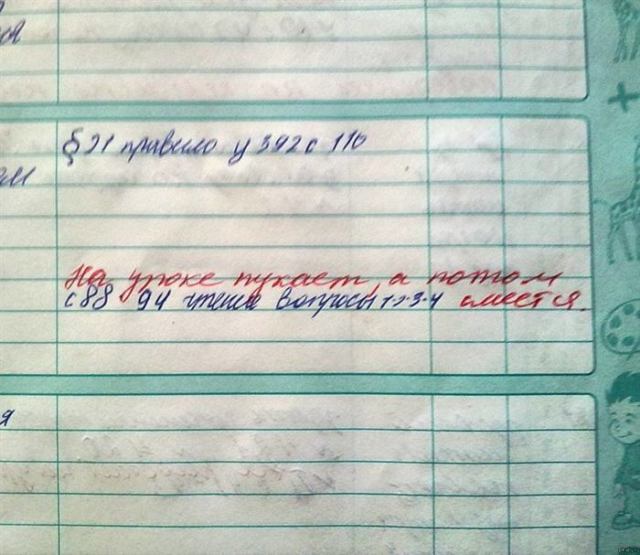 ся
§ 21 правило у 392 с 110
ем
На уроке пукает, а потом
с 88 94 чтение вопросы 1-2-3-4 смеется.
я